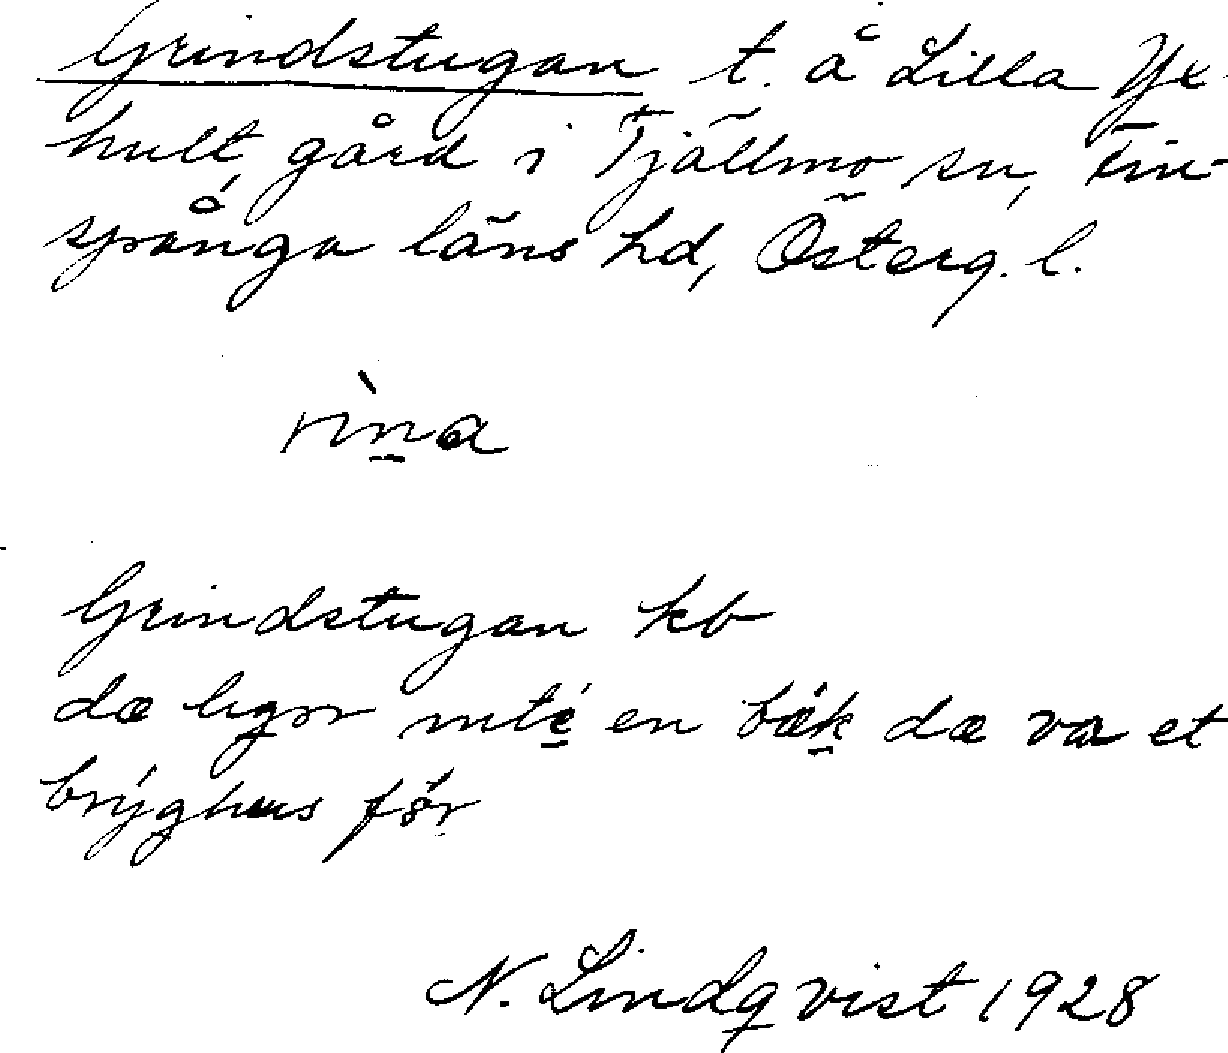 Grindstugan t. å Lilla Yx-
hult, gård i Tjällmo sn, Fin-
spånga läns hd, Österg. l.
rìna
Grindstugan kb
dæ ligər inte en bäk dæ va et
brýghus för
N. Lindqvist 1928